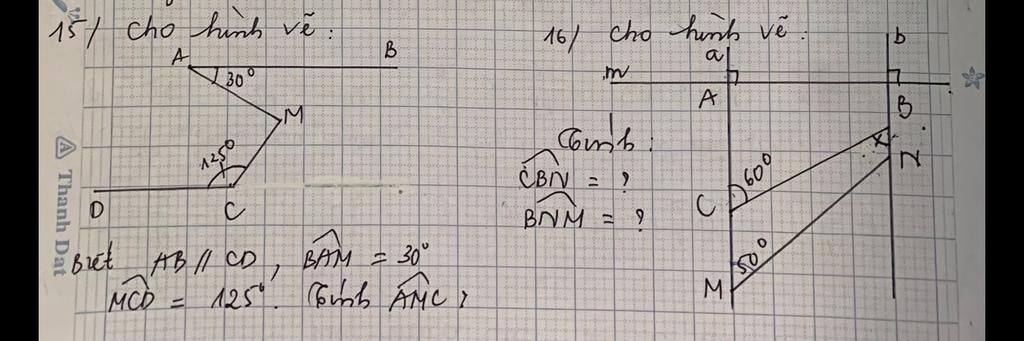 15/ Cho hình vẽ:
A B
30°
M
125°
D C
Biết AB // CD, BAM = 30°
MCD = 125°. Tính AMC?
16/ Cho hình vẽ:
a b
m
A B
Tính:
CBN = ?
BNM = ?
60°
x
N
C
50°
M
Thanh Dat